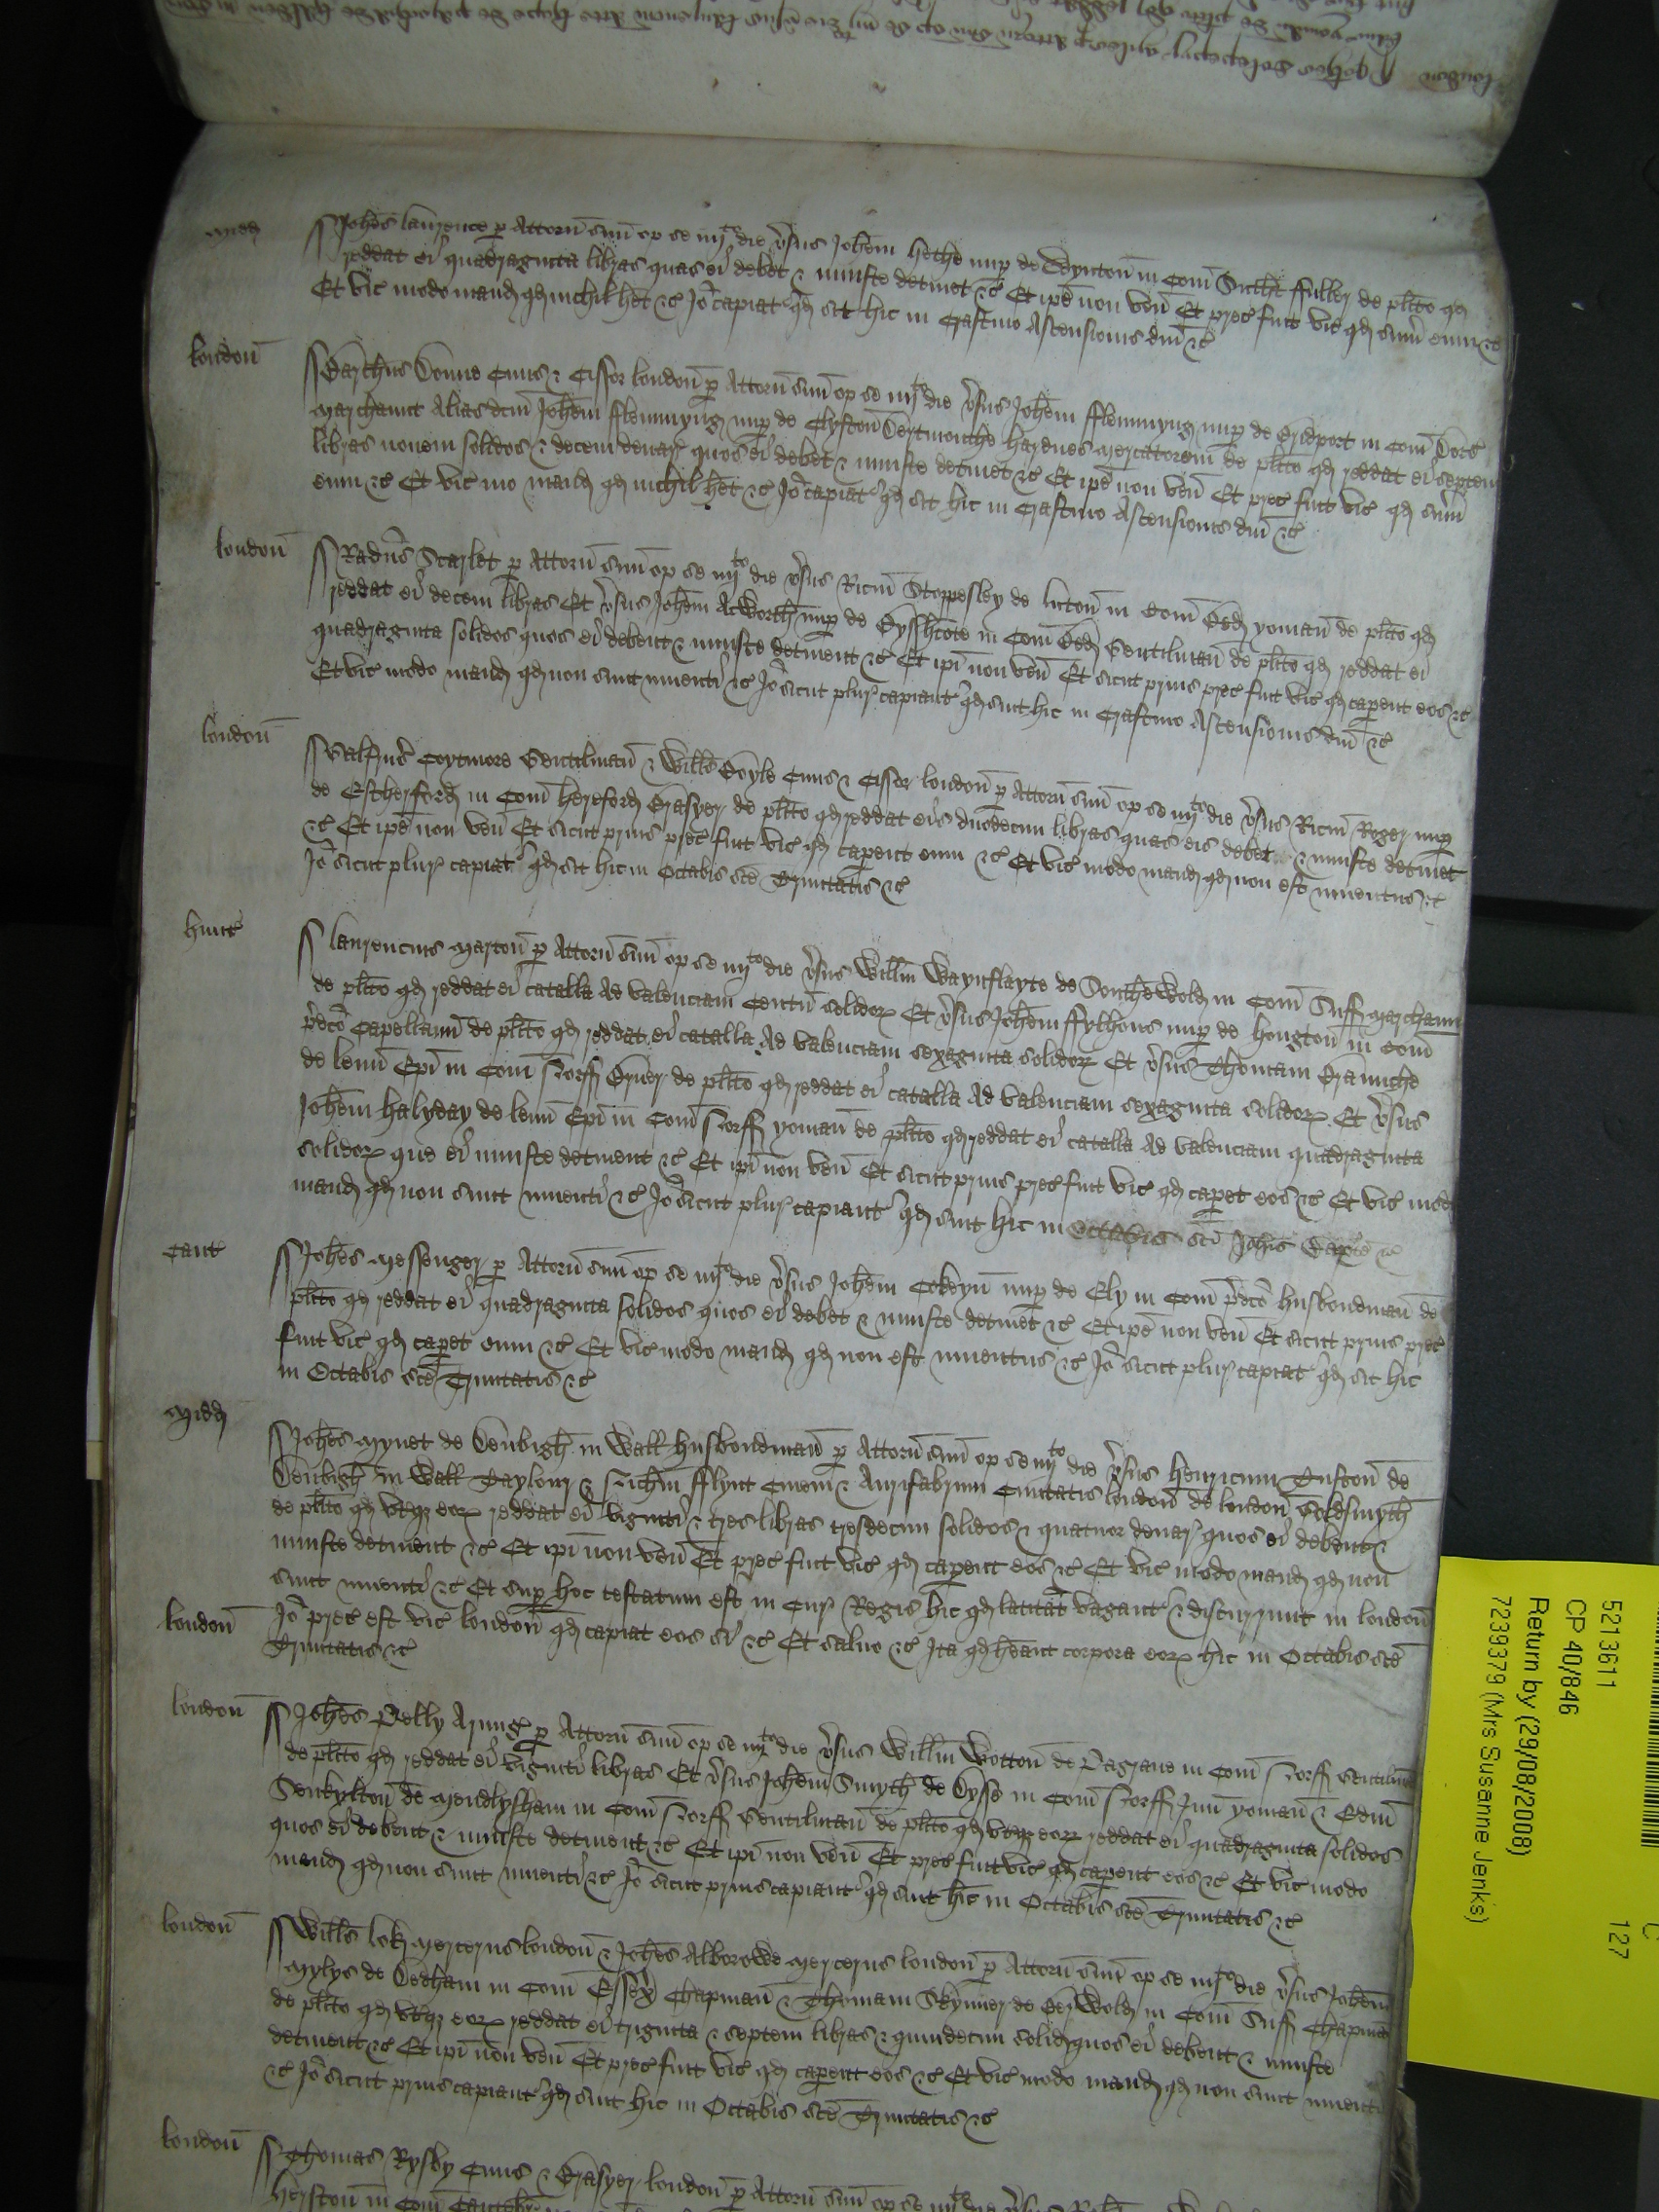 Midd
Johes Laurence p Attorn suu op se iiijto die vsus Johem Hethe nup de Wynton in Com Sutht ffuller de plito qd
reddat ei quadraginta libras quas ei debet & iniuste detinet &c Et ipe non ven Et prec fuit vic qd sum eum &c
Et vic modo mand qd nichil het &c Io capiat qd sit hic in Crastino Ascensionis dni &c
london
Barthus Donne Ciuis & Cissor london p Attorn suu op se iiijto die vsus Johem fflemmyng nup de Bridport in Com Dors
Marchaunt Alias dcm Johem fflemmyng nup de Clyfton Dertmouthe hardnes Mercatorem de plito qd reddat ei septem
libras nouem solidos & decem denar quos ei debet & iniuste detinet &c Et ipe non ven Et prec fuit vic qd sum
eum &c Et vic mo mand qd nichil het &c Io capiat qd sit hic in Crastino Ascensionis dni &c
london
Radus Scarlet p Attorn suu op se iiijto die vsus Ricm Stoppesley de luton in Com Bed yoman de plito qd
reddat ei decem libras Et vsus Johem Acworth nup de Bysshcote in Com Bed Gentilman de plito qd reddat ei
quadraginta solidos quos ei debent & iniuste detinent &c Et ipi non ven Et sicut prius prec fuit vic qd caperent eos &c
Et vic modo mand qd non sunt inuenti &c Io sicut plur capiant qd sint hic in Crastino Ascensionis dni &c
london
Galfrus Coytmore Gentilman & Wills Boyle Ciuis & Cissor london p Attorn suu op se iiijto die vsus Ricm Roger nup
de Estherford in Com hereford Brasyer de plito qd reddat eis duodecim libras quas eis debet & iniuste detinet
&c Et ipe non ven Et sicut prius prec fuit vic qd caperent eum &c Et vic modo mand qd non est inuentus &c
Io sicut plur capiat qd sit hic in Octabis sce Trinitatis &c
hunt
laurencius Marton p Attorn suu op se iiijto die vsus Willm Waynflayte de Southewold in Com Suff Marchaunt
de plito qd reddat ei catalla Ad valenciam Centu solidor Et vsus Johem ffylhous nup de hougton in Com
pdco Capellanu de plito qd reddat ei catalla Ad valenciam sexaginta solidor Et vsus Thomam Braunche
de lenn Epi in Com Norff Bruer de plito qd reddat ei catalla Ad valenciam sexaginta solidor Et vsus
Johem halyday de lenn Epi in Com Norff yoman de plito qd reddat ei catalla Ad valenciam quadraginta
solidor que ei iniuste detinent &c Et ipi non ven Et sicut prius prec fuit vic qd caperet eos &c Et vic modo
mand qd non sunt inuenti &c Io sicut plur capiant qd sint hic in Octabis sci Johis Bapte &c
Cant
Johes Messenger p Attorn suu op se iiijto die vsus Johem Cokeyn nup de Ely in Com pdco husbondman de
plito qd reddat ei quadraginta solidos quos ei debet & iniuste detinet &c Et ipe non ven Et sicut prius prec
fuit vic qd caperet eum &c Et vic modo mand qd non est inuentus &c Io sicut plur capiat qd sit hic
in Octabis sce Trinitatis &c
Midd
Johes Mynet de Denbigh in Wall husbondman p Attorn suu op se iiijto die vsus henricum Duston de
Denbigh in Wall Taylour & Nichm fflynt Ciuem & Aurifabrum Ciuitatis london de london Goldsmyth
de plito qd vterq eor reddat ei viginti & tres libras tresdecim solidos & quatuor denar quos ei debent &
iniuste detinent &c Et ipi non ven Et prec fuit vic qd caperent eos &c Et vic modo mand qd non
sunt inuenti &c Et sup hoc testatum est in Cur Regis hic qd latitat vagant & discurrunt in london
london
Io prec est vic london qd capiat eos si &c Et saluo &c Ita qd heant corpora eor hic in Octabis sce
Trinitatis &c
london
Johes Pelly Armig p Attorn suu op se iiijto die vsus Willm Wotton de Pagraue in Com Norff Gentilman
de plito qd reddat ei viginti libras Et vsus Johem Smyth de Dysse in Com Norff Jun yoman & Edm
de Mendlysham in Com Norff Gentilman de plito qd vterq eor reddat ei quadraginta solidos
quos ei debent & iniuste detinent &c Et ipi non ven Et prec fuit vic qd caperent eos &c Et vic modo
mand qd non sunt inuenti &c Io sicut prius capiant qd sint hic in Octabis sce Trinitatis &c
london
Wills lok Mercerus london & Johes Alborowe Mercerus london p Attorn suu op se iiijto die vsus Johem
Mylys de Dedham in Com Essex Chapman & Thomam Skynner de in Com Suff Chapman
de plito qd vterq eor reddat ei triginta & septem libras & quindecim solid quos ei debent & iniuste
detinent &c Et ipi non ven Et prec fuit vic qd caperent eos &c Et vic modo mand qd non sunt inuenti
&c Io sicut prius capiant qd sint hic in Octabis sce Trinitatis &c
london
Thomas Rysby Ciuis & Brasyer london p Attorn suu op se iiijto die vsus
in Com
5213611
CP 40/846
Return by (29/08/2008)
7239379 (Mrs Susanne Jenks)
127